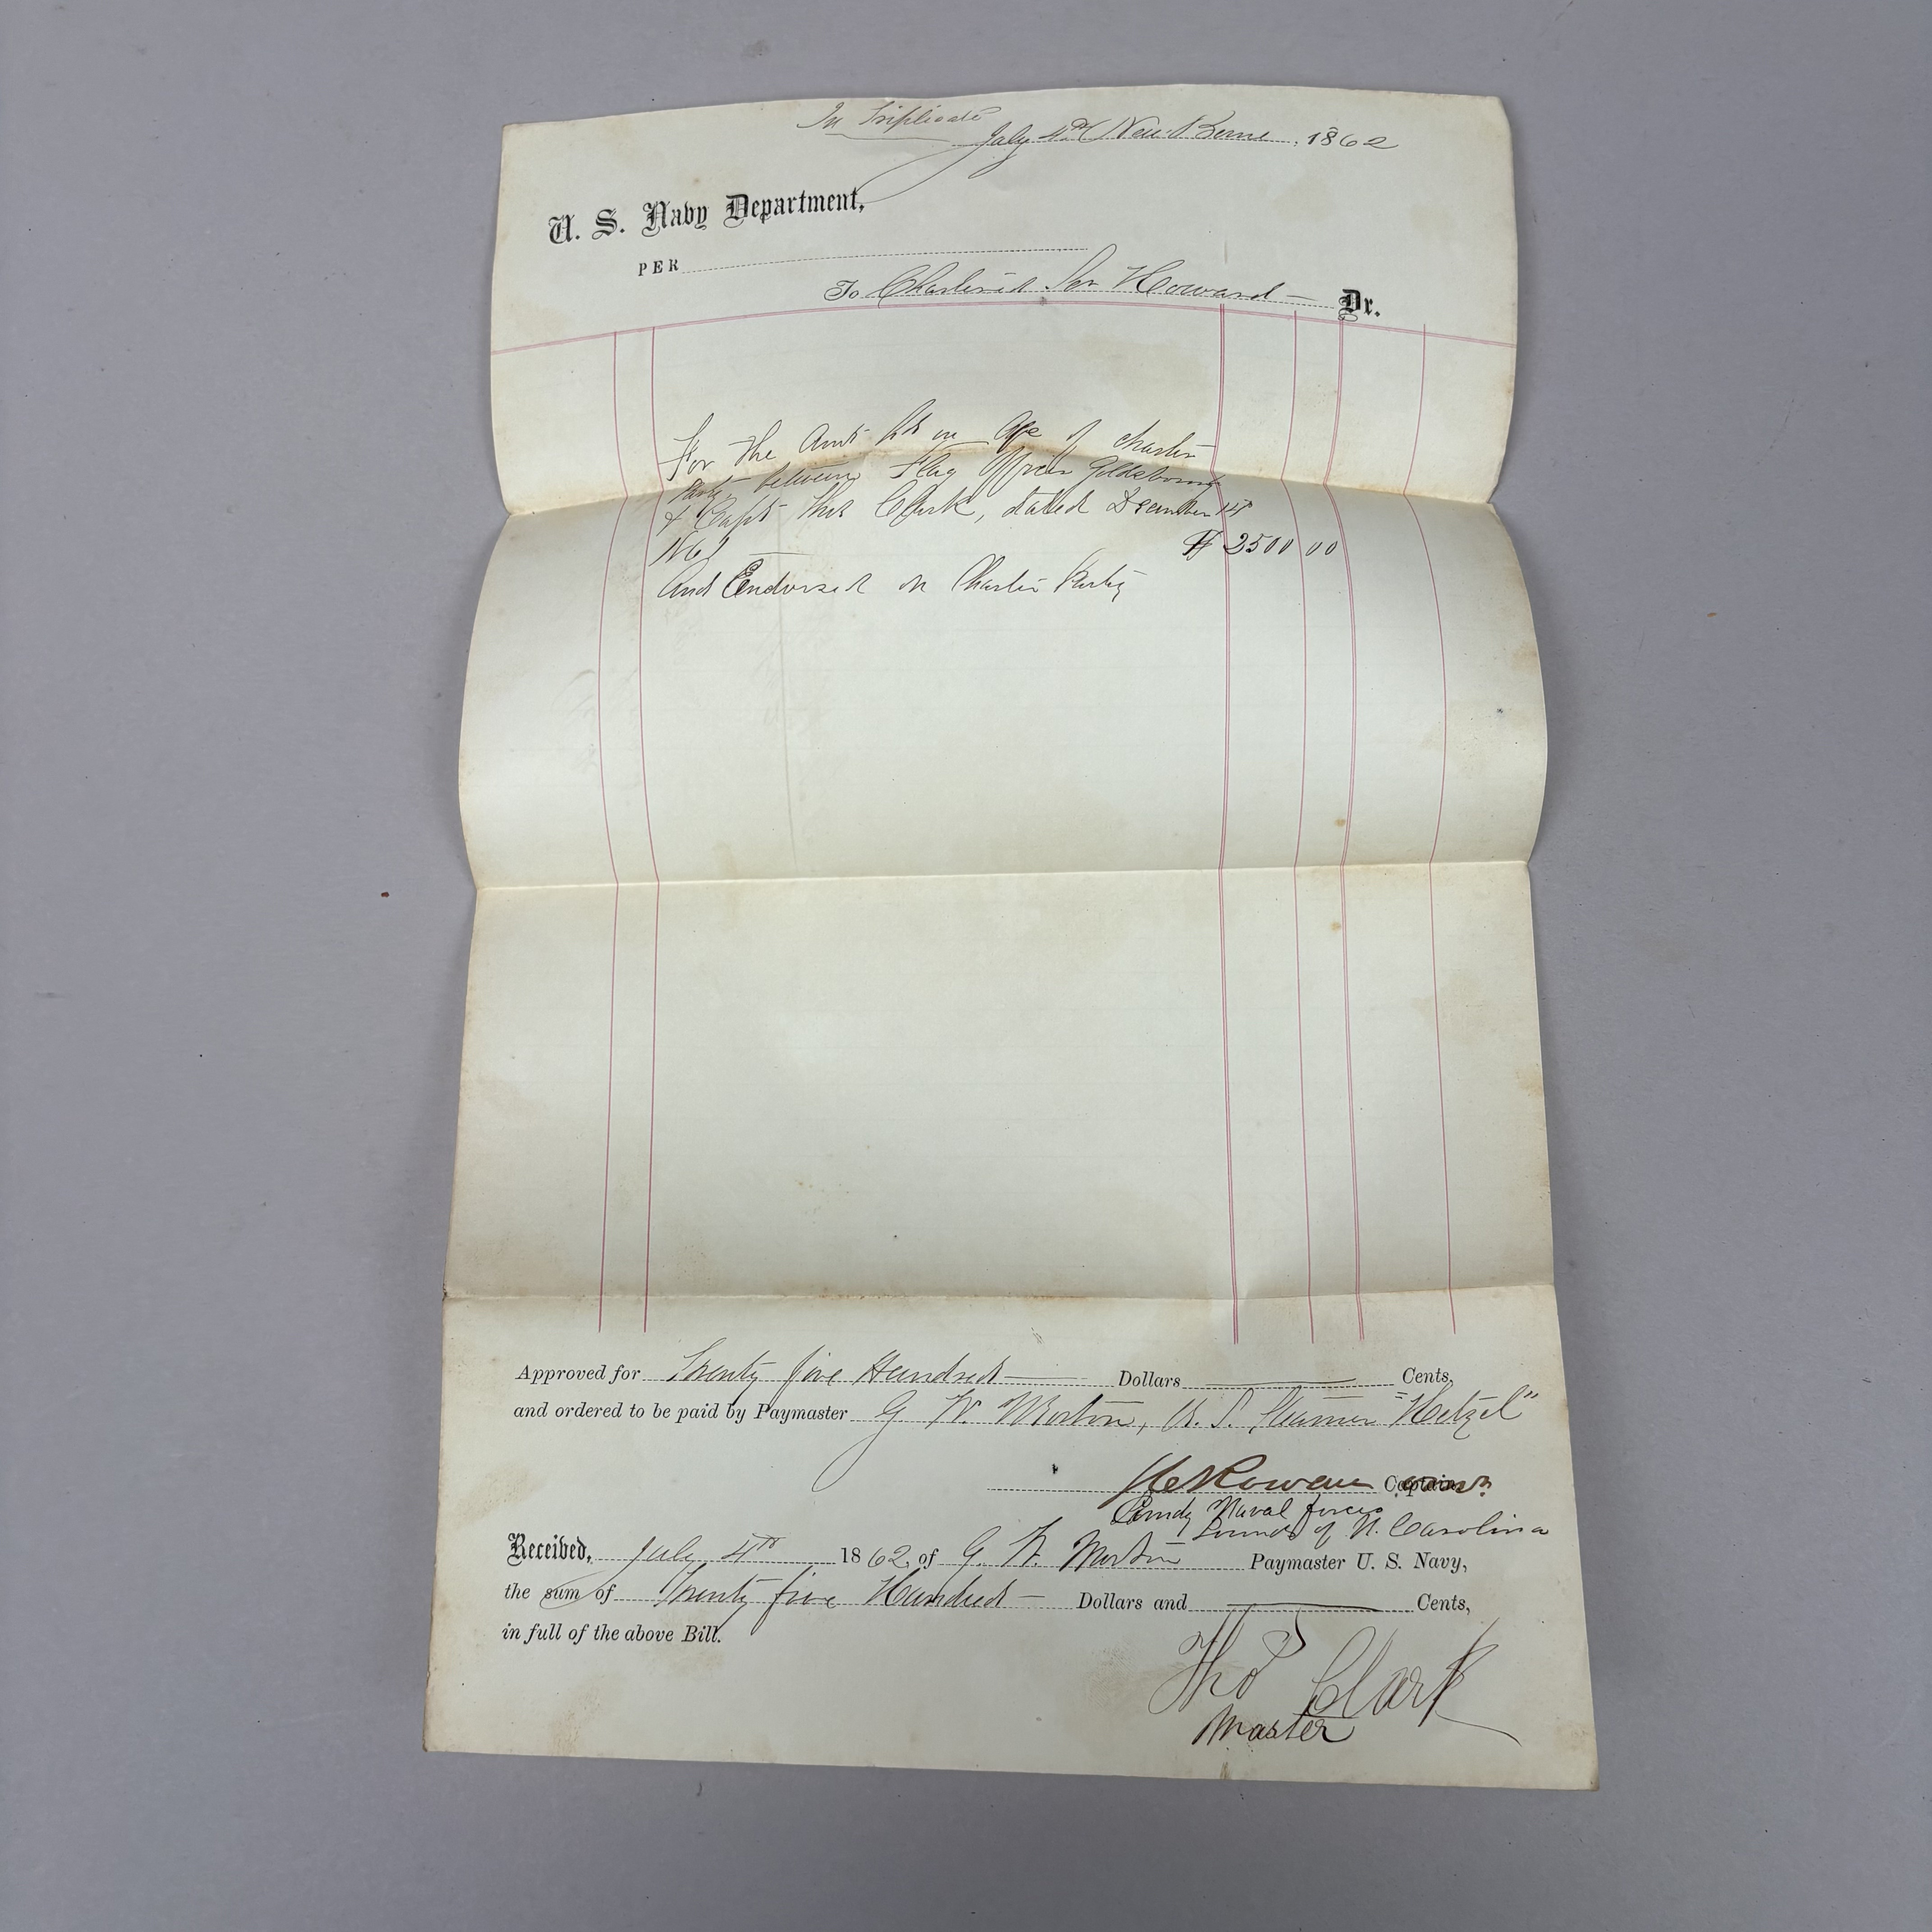 In Triplicate
July 4th New Berne, 1862
U. S. Navy Department,
PER
To Chartered Scr Howard Dr.
For the Amt on a/c of charter
Party between Flag Officer Goldsborough
& Capt Thos Clark, dated December 14th
1861 $ 2500 00
And Endorsed on Charter Party
Approved for Twenty five Hundred Dollars Cents,
and ordered to be paid by Paymaster G W Morton, U. S. Steamer "Hetzel"
S C Rowan Captain
Comdg Naval forces
Sounds of N. Carolina
Received, July 4th 1862, of G. W. Morton Paymaster U. S. Navy,
the sum of Twenty five Hundred Dollars and Cents,
in full of the above Bill.
Thos Clark
Master